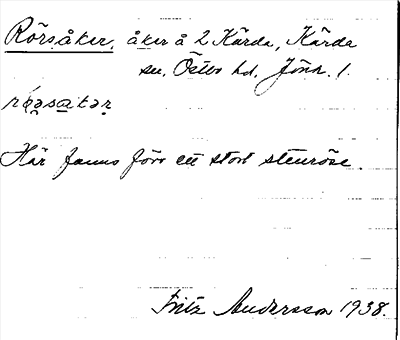 Rörsåker, åker å 2 Kärda, Kärda
sn, Östbo hd, Jönk. l.
Här fanns förr ett stort stenröse.
Fritz Andersson 1938.